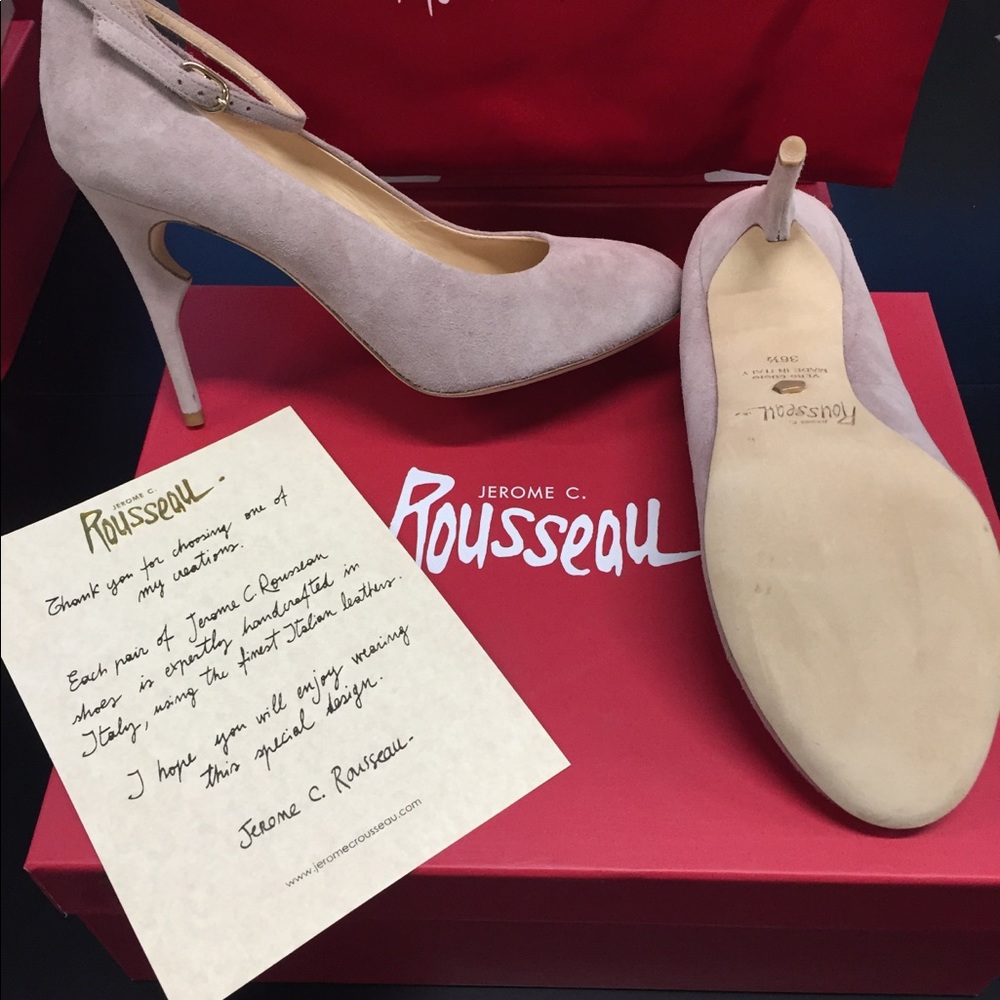 JEROME C.
Rousseau
JEROME C.
Rousseau
Thank you for choosing one of
my creations.
Each pair of Jerome C. Rousseau
shoes is expertly handcrafted in
Italy, using the finest Italian leathers.
I hope you will enjoy wearing
this special design.
Jerome C. Rousseau
www.jeromecrousseau.com
JEROME C.
Rousseau
VERO CUOIO
MADE IN ITALY
36½